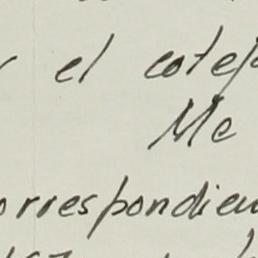 r el cotej
Me
orrespondien